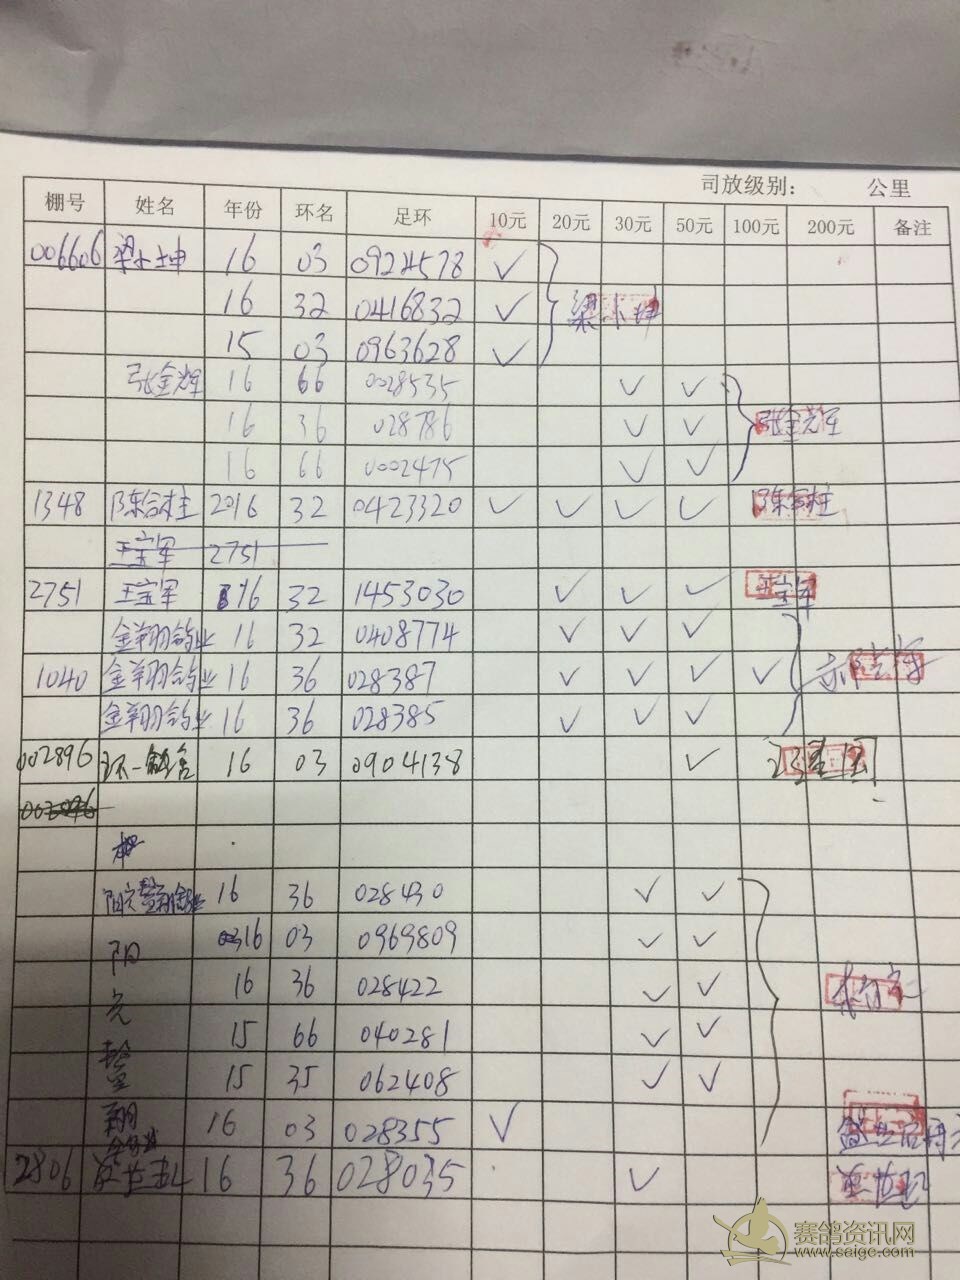 司放级别： 公里
棚号 姓名 年份 环名 足环 10元 20元 30元 50元 100元 200元 备注
006606 梁小坤 16 03 0924578 ✓ 梁小坤
16 32 0416832 ✓
15 03 0963628 ✓
张金辉 16 66 0028535 ✓ ✓ 张金辉
16 36 028786 ✓ ✓
16 66 0002475 ✓ ✓
1348 陈合柱 2016 32 0423320 ✓ ✓ ✓ ✓ 陈合柱
王宝军 2751
2751 王宝军 16 32 1453030 ✓ ✓ ✓ 王宝军
金翔鸽业 16 32 0408774 ✓ ✓ ✓
1040 金翔鸽业 16 36 028387 ✓ ✓ ✓ ✓
金翔鸽业 16 36 028385 ✓ ✓ ✓
002896 环一鸽舍 16 03 0904138 ✓
16 36 028430 ✓ ✓
阳 16 03 0969809 ✓ ✓
光 16 36 028422 ✓ ✓
15 66 040281 ✓ ✓
15 35 062408 ✓ ✓
翔 16 03 028355 ✓
2806 16 36 028035 ✓
赛鸽资讯网
www.saigc.com